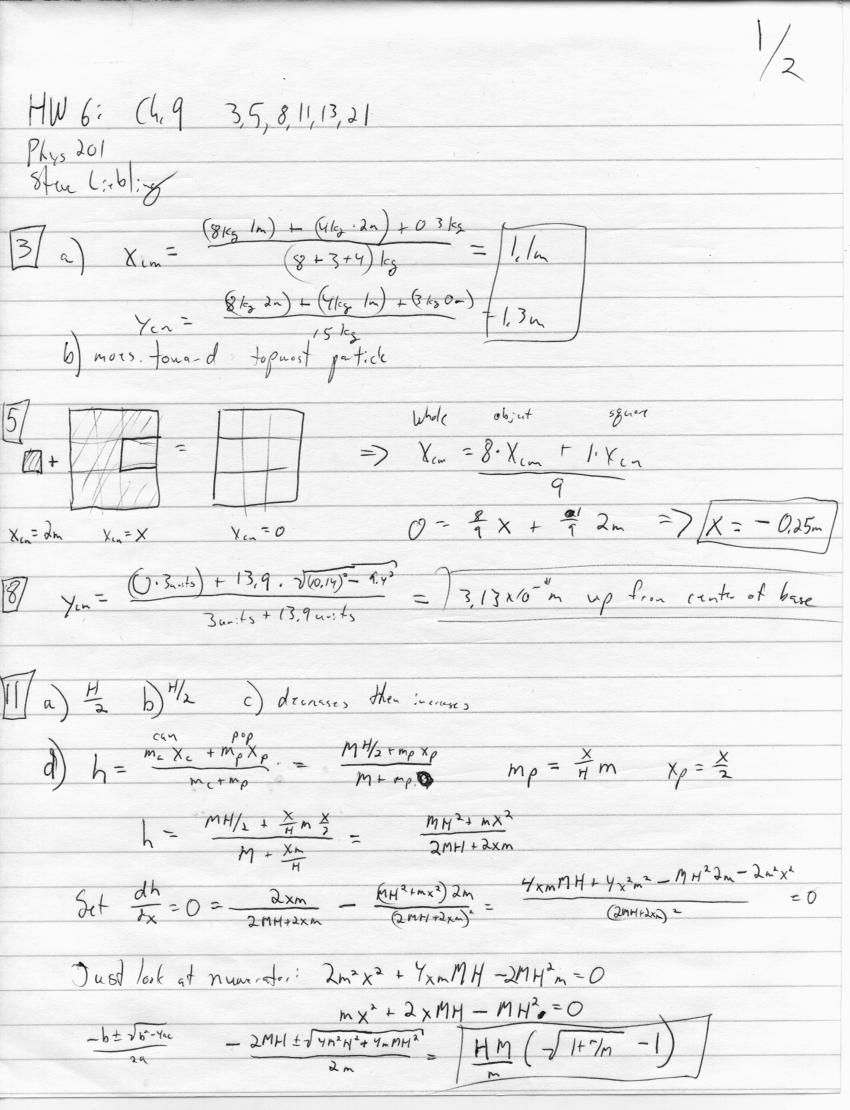 1/2
HW 6: Ch. 9 3,5, 8, 11, 13, 21
Phys 201
Steve Liebling
3 a) Xcm = (8kg 1m) + (4kg · 2m) + 0 3kg / (8 + 3 + 4) kg = 1.1m
Ycm = (8kg 2m) + (4kg 1m) + (3kg 0m) / 15kg = 1.3m
b) moves toward topmost particle
5 whole object square
+ = ⇒ Xcm = 8·Xcm + 1·Xcm / 9
Xcm = 2m Xcm = X Xcm = 0 0 = 8/9 X + 1/9 2m ⇒ X = - 0.25m
8 Ycm = (0·3units) + 13.9 · √(10.14)² - 9.4² / 3units + 13.9 units = 3.13 x10^-11 m up from center of base
11 a) H/2 b) H/2 c) decreases then increases
can pop
d) h = mc Xc + mp Xp / mc + mp = MH/2 + mp xp / M + mp mp = X/H m Xp = X/2
h = MH/2 + X/H m X/2 / M + Xm/H = MH² + mX² / 2MH + 2xm
Set dh/dx = 0 = 2xm / 2MH+2xm - (MH²+mx²) 2m / (2MH+2xm)² = 4xmMH + 4x²m² - MH²2m - 2m²x² / (2MH+2xm)² = 0
Just look at numerator: 2m²x² + 4xmMH - 2MH²m = 0
mx² + 2xMH - MH² = 0
-b ± √b²-4ac / 2a - 2MH ± √4M²H² + 4mMH² / 2m = HM/m (√1+m/M - 1)